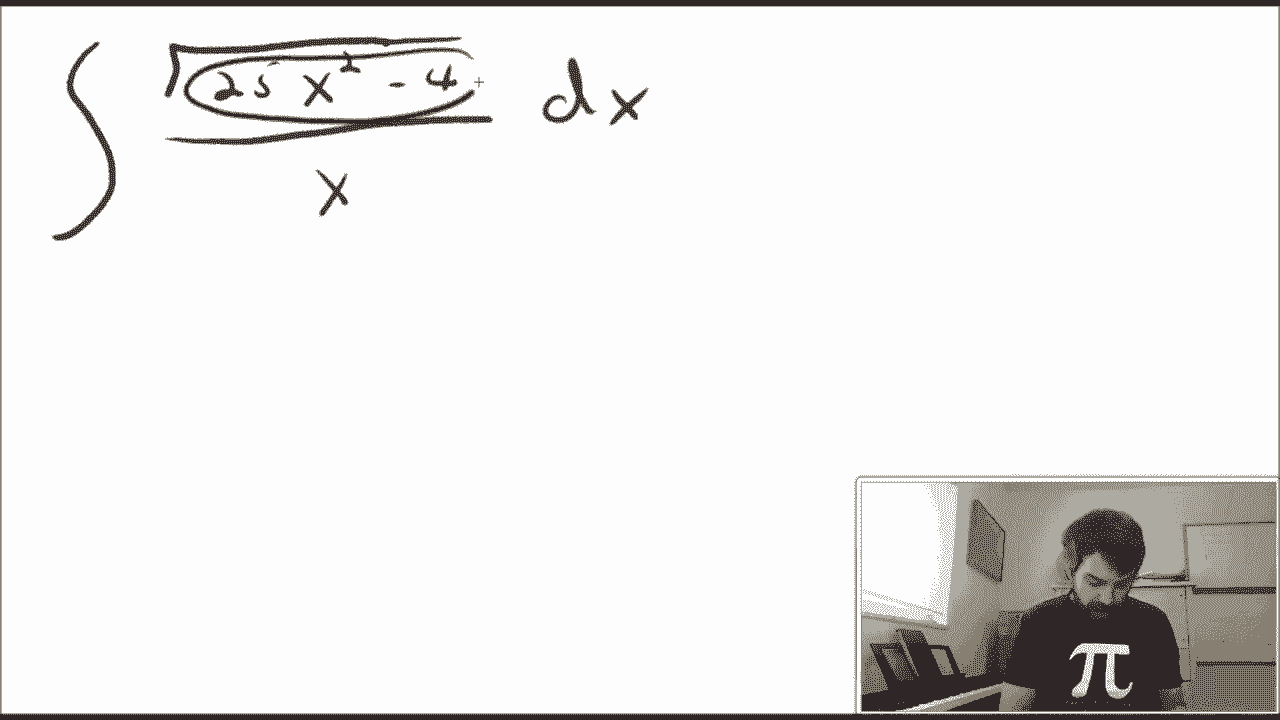 ∫ √(25x² - 4) / x dx
π